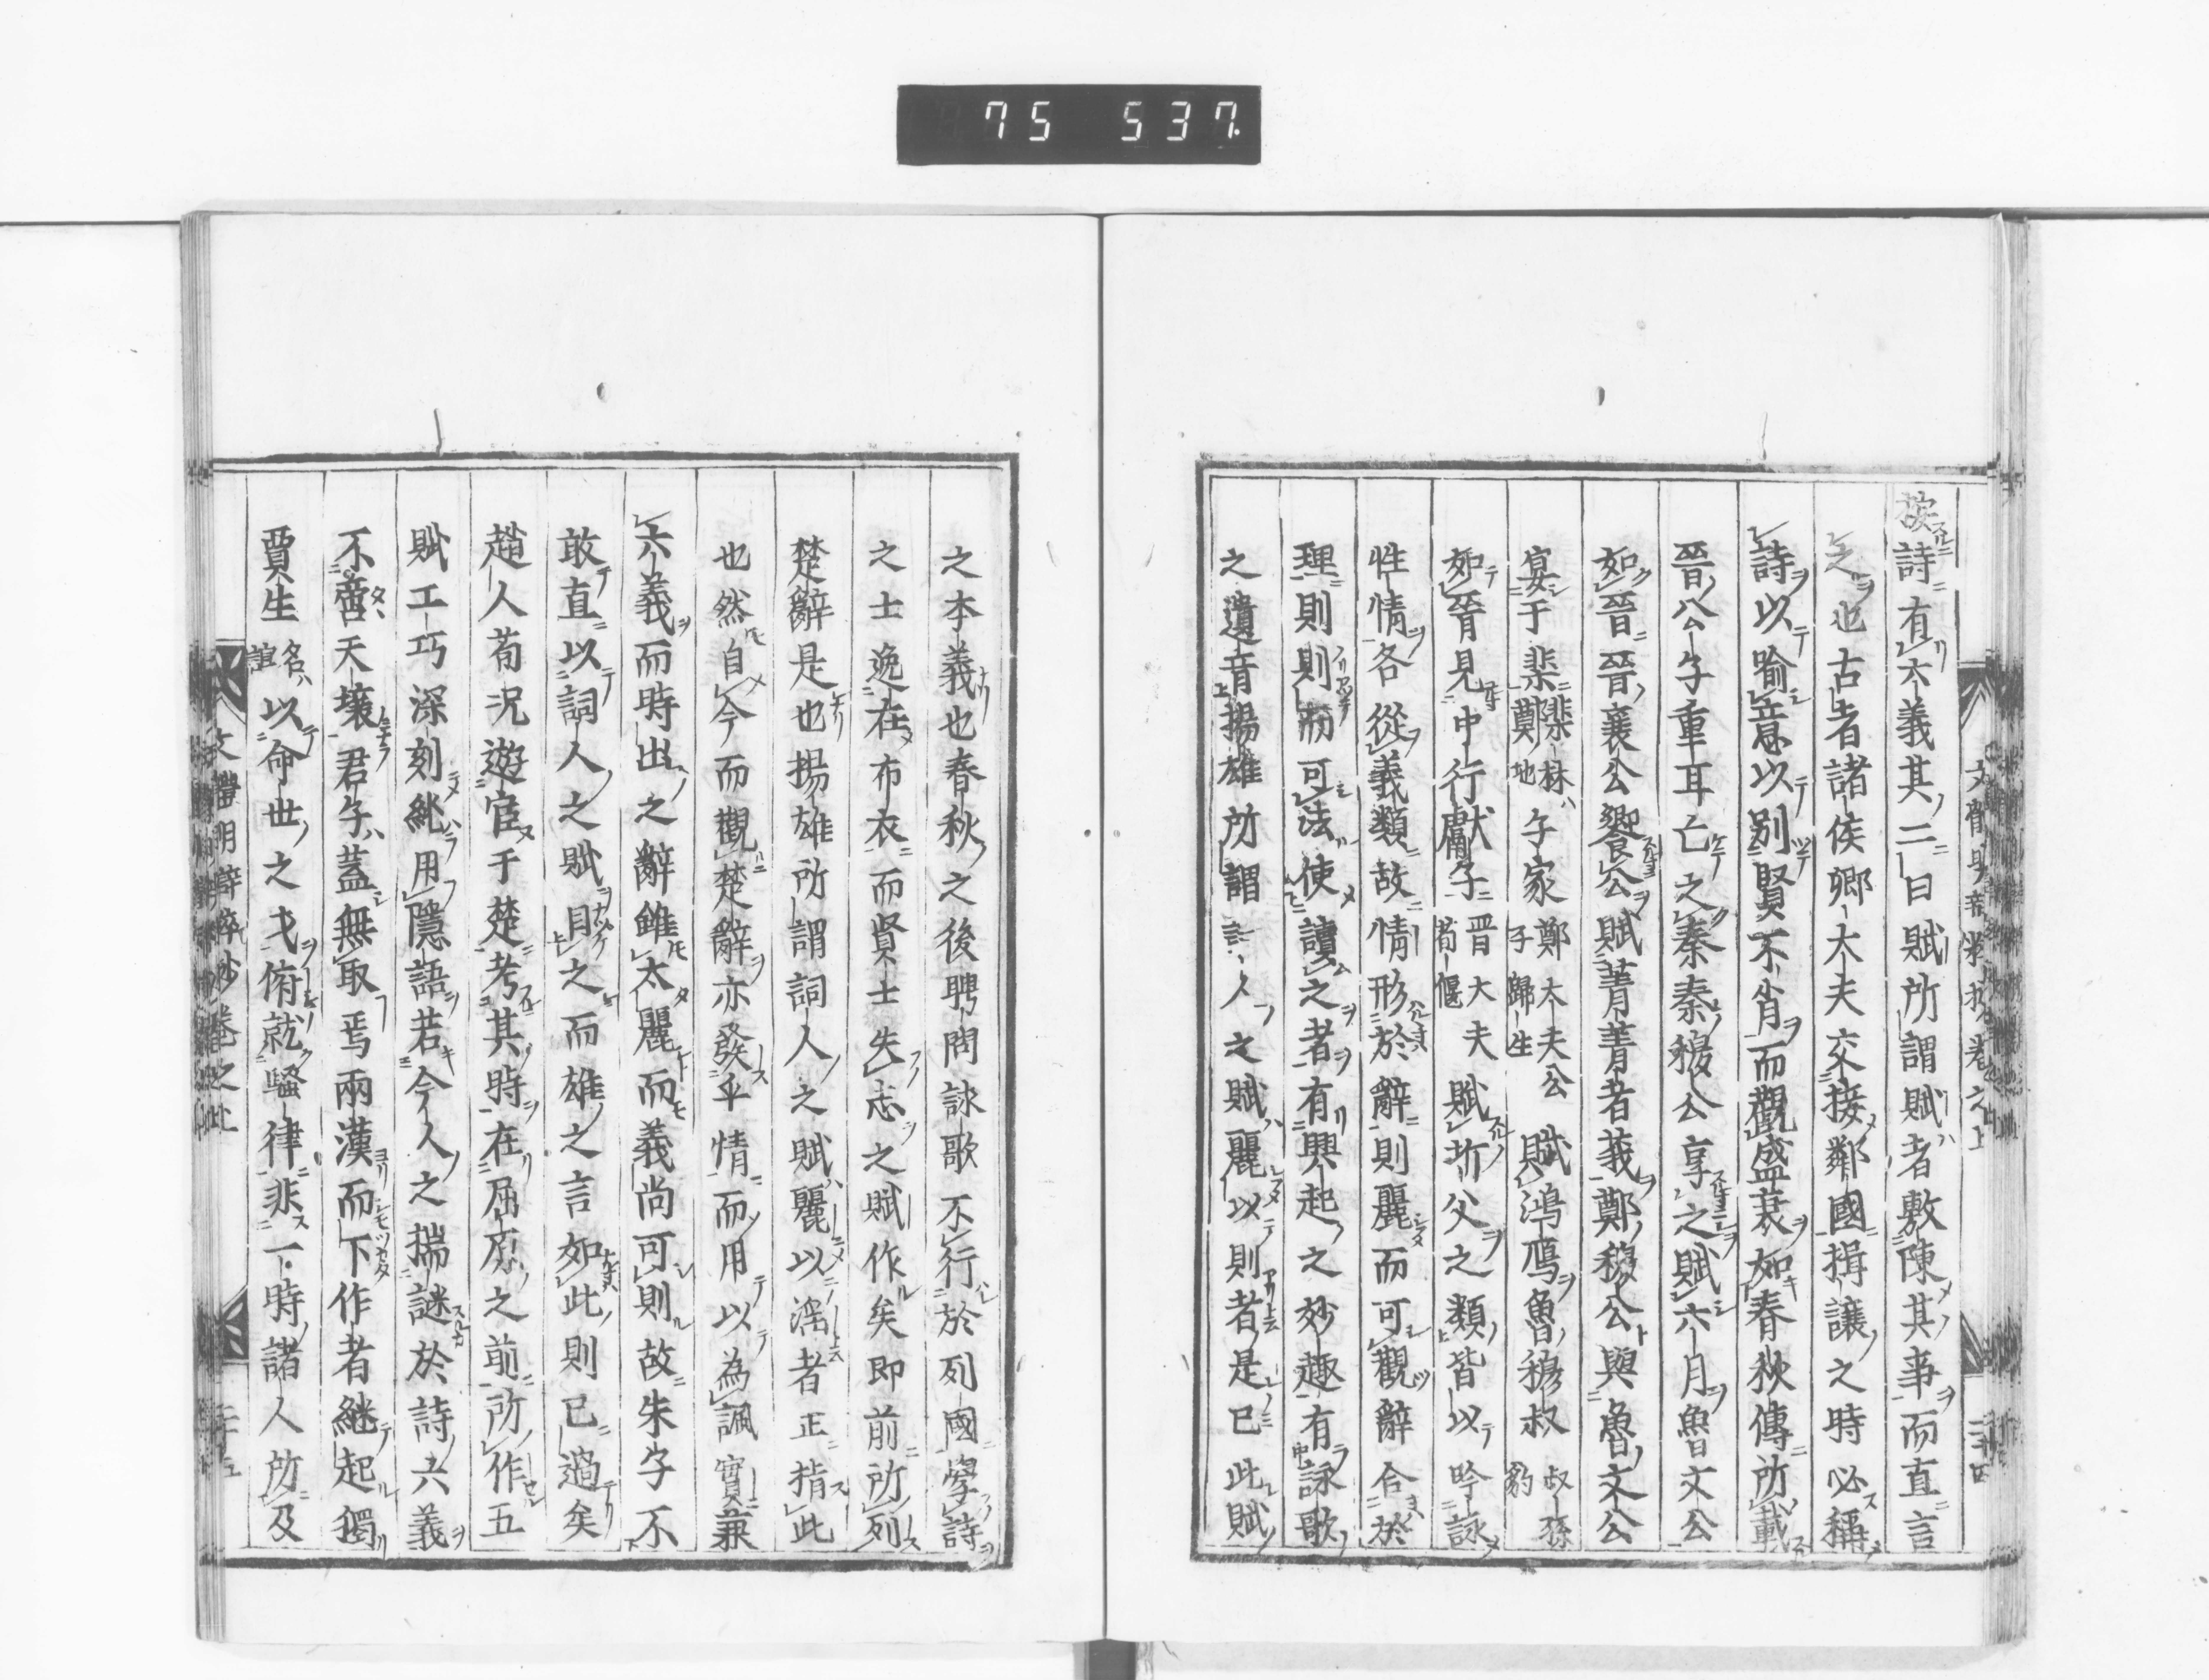 75 537
按詩有六義其二曰賦所謂賦者敷陳其事而直言
之也古者諸侯卿大夫交接鄰國揖讓之時必稱
詩以喻意以別賢不肖而觀盛衰如春秋傳所載
晉公子重耳亡之秦秦穆公享之賦六月魯文公
如晉晉襄公饗公賦菁菁者莪鄭穆公與魯文公
宴于棐棐林鄭地子家鄭大夫公子歸生賦鴻鴈魯穆叔叔孫豹
如晉見中行獻子晋大夫荀偃賦圻父之類皆以吟詠
性情各從義類故情形於辭則麗而可觀辭合於
理則則而可法使讀之者有興起之妙趣有詠歌
之遺音揚雄所謂詩人之賦麗以則者是已此賦
之本義也春秋之後聘問詠歌不行於列國學詩
之士逸在布衣而賢士失志之賦作矣即前所列
楚辭是也揚雄所謂詞人之賦麗以滛者正指此
也然自今而觀楚辭亦發乎情而用以為諷實兼
六義而時出之辭雖太麗而義尚可則故朱子不
敢直以詞人之賦目之而雄之言如此則已過矣
趙人荀況遊宦于楚考其時在屈原之前所作五
賦工巧深刻純用隱語若今人之揣謎於詩六義
不啻天壤君子蓋無取焉兩漢而下作者継起獨
賈生名誼以命世之才俯就騷律非一時諸人所及
文體明辯粹抄卷之上
二十四